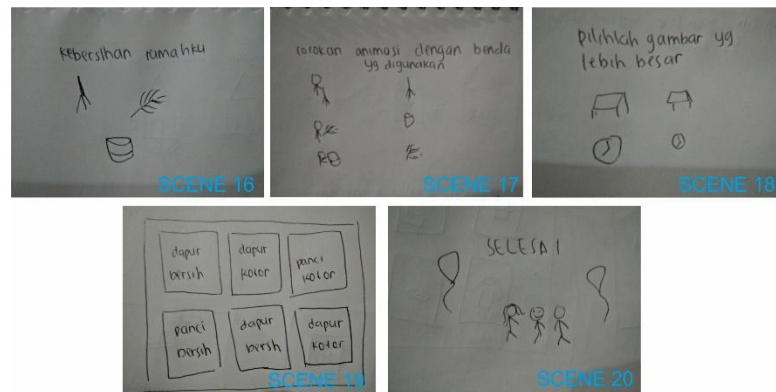 kebersihan rumahku
SCENE 16
cocokan animasi dengan benda
yg digunakan
SCENE 17
Pilihlah gambar yg
lebih besar
SCENE 18
dapur
bersih
dapur
kotor
panci
kotor
panci
bersih
dapur
bersh
dapur
kotor
SCENE 19
SELESAI
SCENE 20